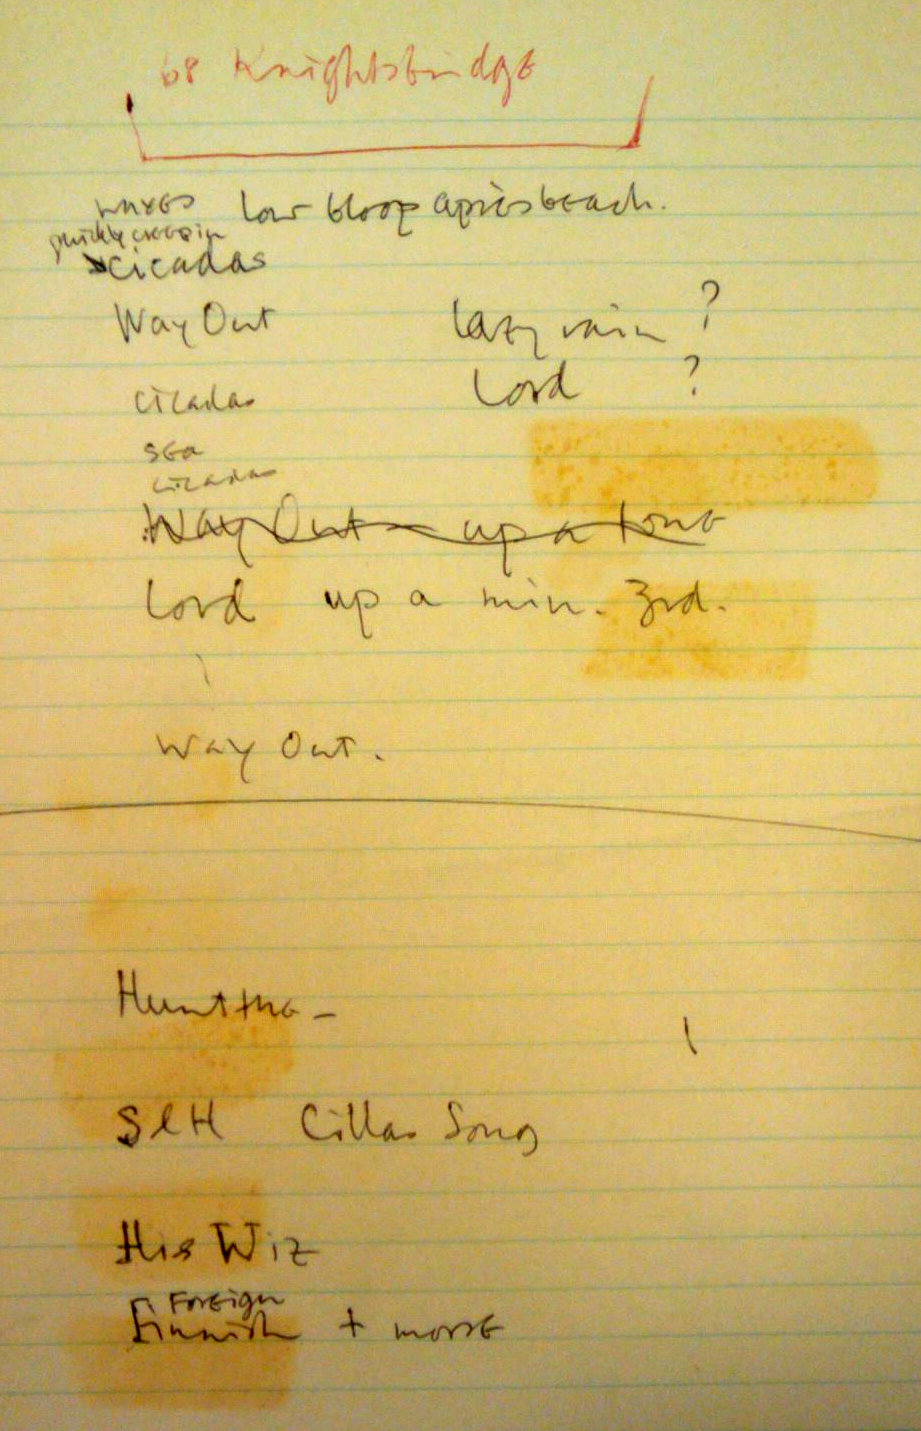 68 Knightsbridge
waves low bloop après beach.
quickly creep in
cicadas
Way Out lazy rain ?
cicadas Lord ?
sea
cicadas
Way Out - up a tone
Lord up a min. 3rd.
Way Out.
Hunt the -
SLH Cillas Song
His Wiz
Foreign
Finnish + morse